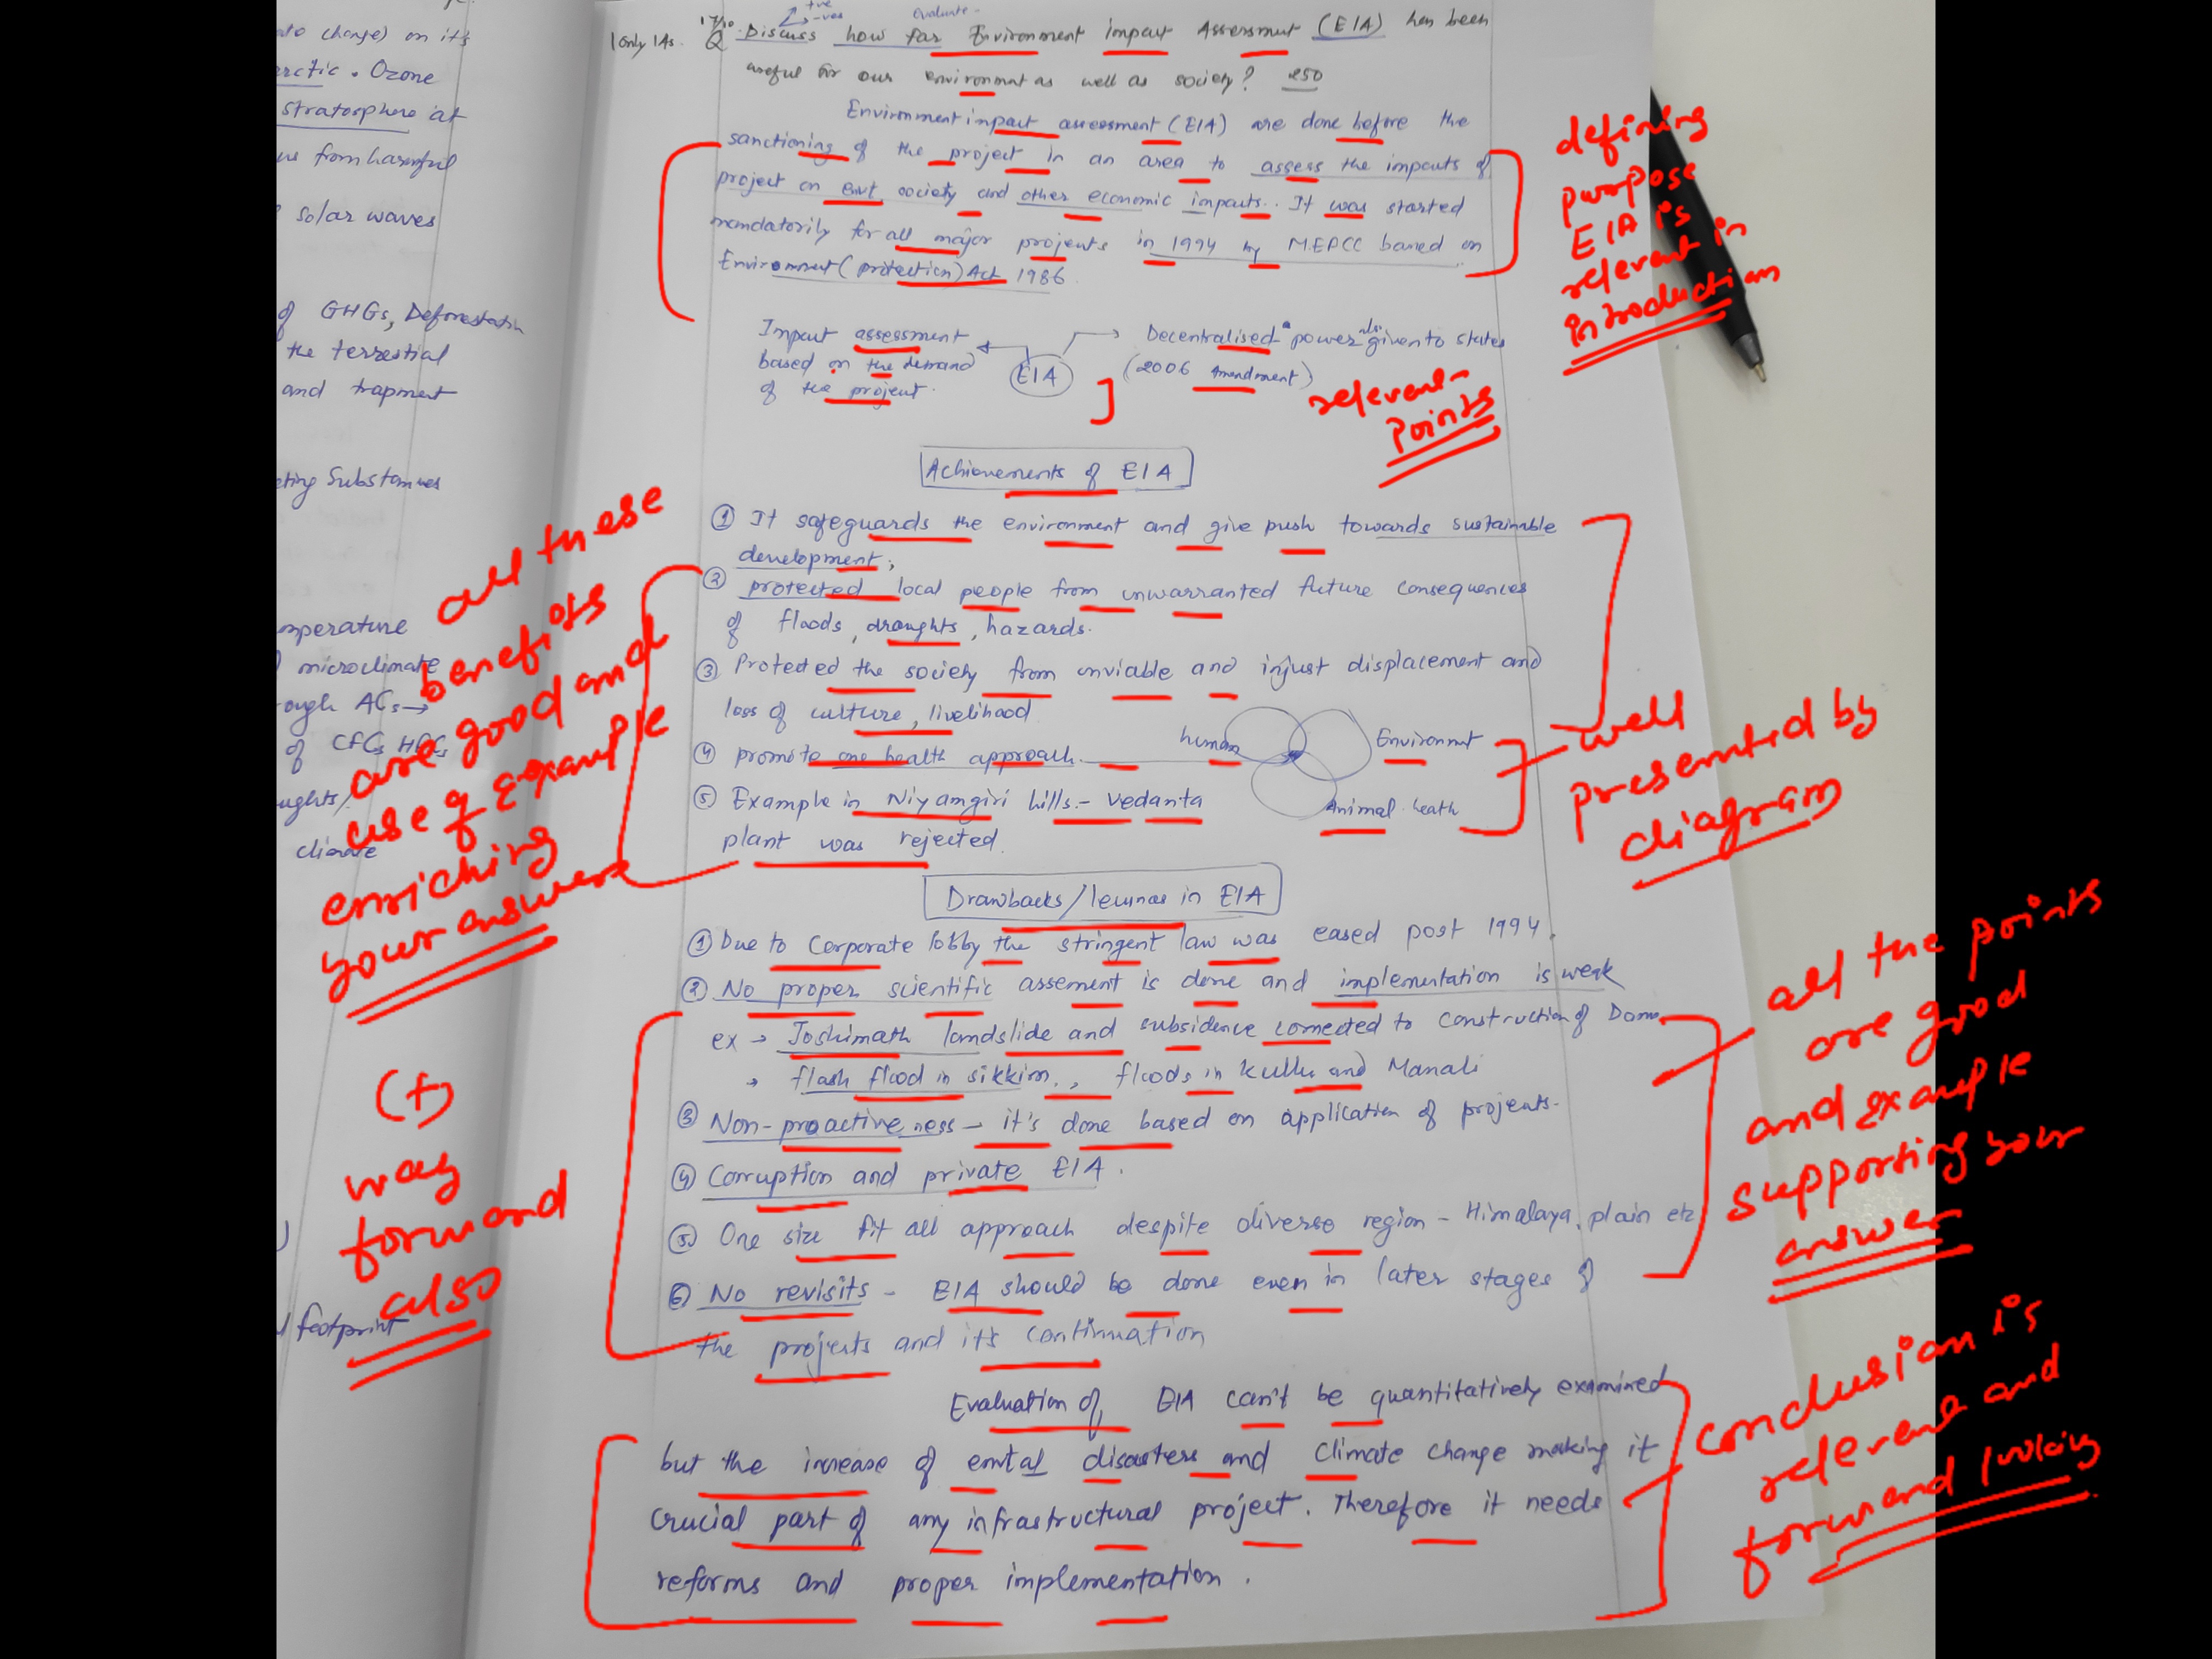 ate change) on it's
arctic. Ozone
stratosphere at
us from harmful
solar waves
of GHGs, Deforestatin
the terrestial
and trapment
eting Substances
mperature
microclimate
ough ACs→
of CFCs HFCs
ughts/
climate
footprint
+ve
-ves
evaluate -
1only IAs.
17/10
Q. Discuss how far Environment impact Assessment (EIA) has been
useful for our environmnt as well as society? 250
Environment impact assessment (EIA) are done before the
sanctioning of the project in an area to assess the impacts of
project on envt, society and other economic impacts. It was started
mandatorily for all major projects in 1994 by MEFCC based on
Environment (protection) Act 1986.
defining
purpose
EIA is
relevent in
introduction
Impact assessment
based on the demand
of the project.
EIA
Decentralised power also given to states
(2006 Amendment)
relevent
points
Achievements of EIA
① It safeguards the environment and give push towards sustainable
development;
② protected local people from unwarranted future consequences
of floods, draughts, hazards.
③ Protected the society from unviable and injust displacement and
loss of culture, livelihood
④ promote one health approach.
human
Environmt
Animal heath
⑤ Example in Niyamgiri hills - Vedanta
plant was rejected.
all these
benefits
are good and
use of example
enriching
your answere
well
presented by
diagram
Drawbacks/lecunas in EIA
① Due to corporate lobby the stringent law was eased post 1994.
② No proper scientific assement is done and implementation is weak
ex → Joshimath landslide and subsidence connected to construction of Dams
→ flash flood in sikkim., floods in kullu and Manali
③ Non-proactiveness - it's done based on application of projects.
④ Corruption and private EIA.
⑤ One size fit all approach despite diverse region - Himalaya, plain etc
⑥ No revisits - EIA should be done even in later stages of
the projects and it's continuation
all the points
are good
and example
supporting your
answer
(+)
way
forward
also
Evaluation of EIA can't be quantitatively examined
but the increase of envtal disasters and climate change making it
crucial part of any infrastructural project. Therefore it needs
reforms and proper implementation.
conclusion is
relevent and
forward looking